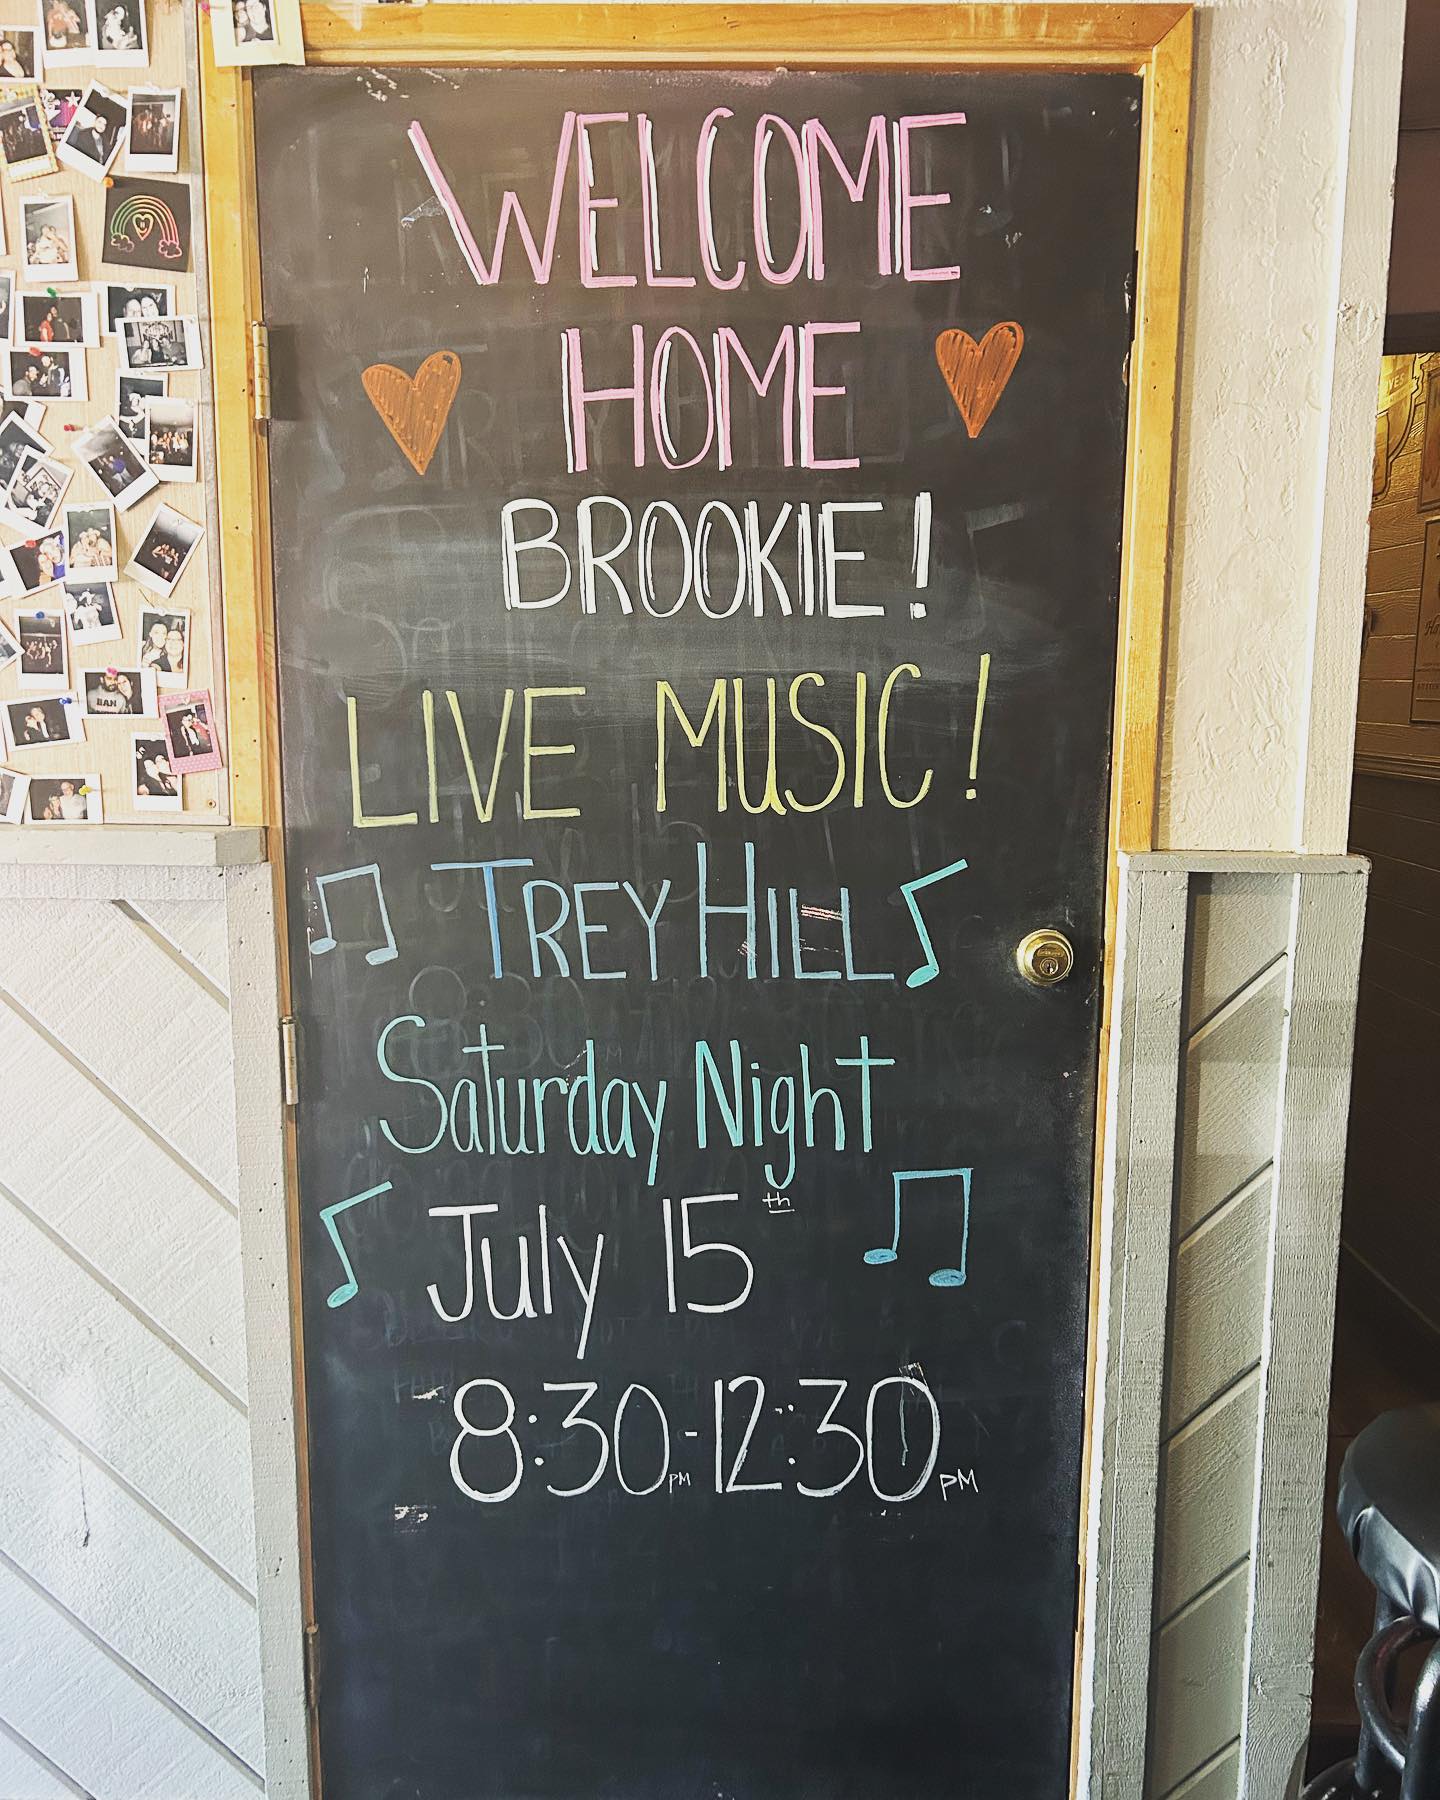 WELCOME
HOME
BROOKIE!
LIVE MUSIC!
TREY HILL
Saturday Night
July 15th
8:30PM-12:30PM